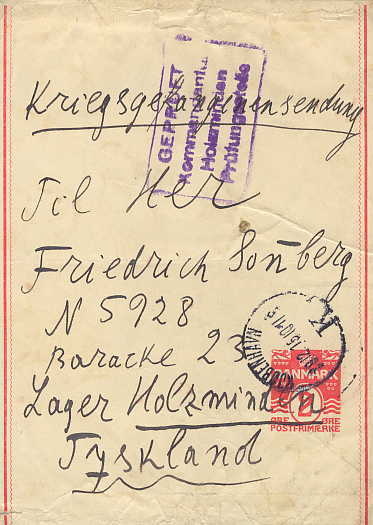 Kriegsgefangenensendung
GEPRÜFT
Kommandantur
Holzminden
Prüfungsstelle
Til Her
Friedrich Sonberg
N 5928
Baracke 23
Lager Holzminden
Tyskland
KJØBENHAVN
K.
DANMARK
2
ØRE ØRE
POSTFRIMÆRKE